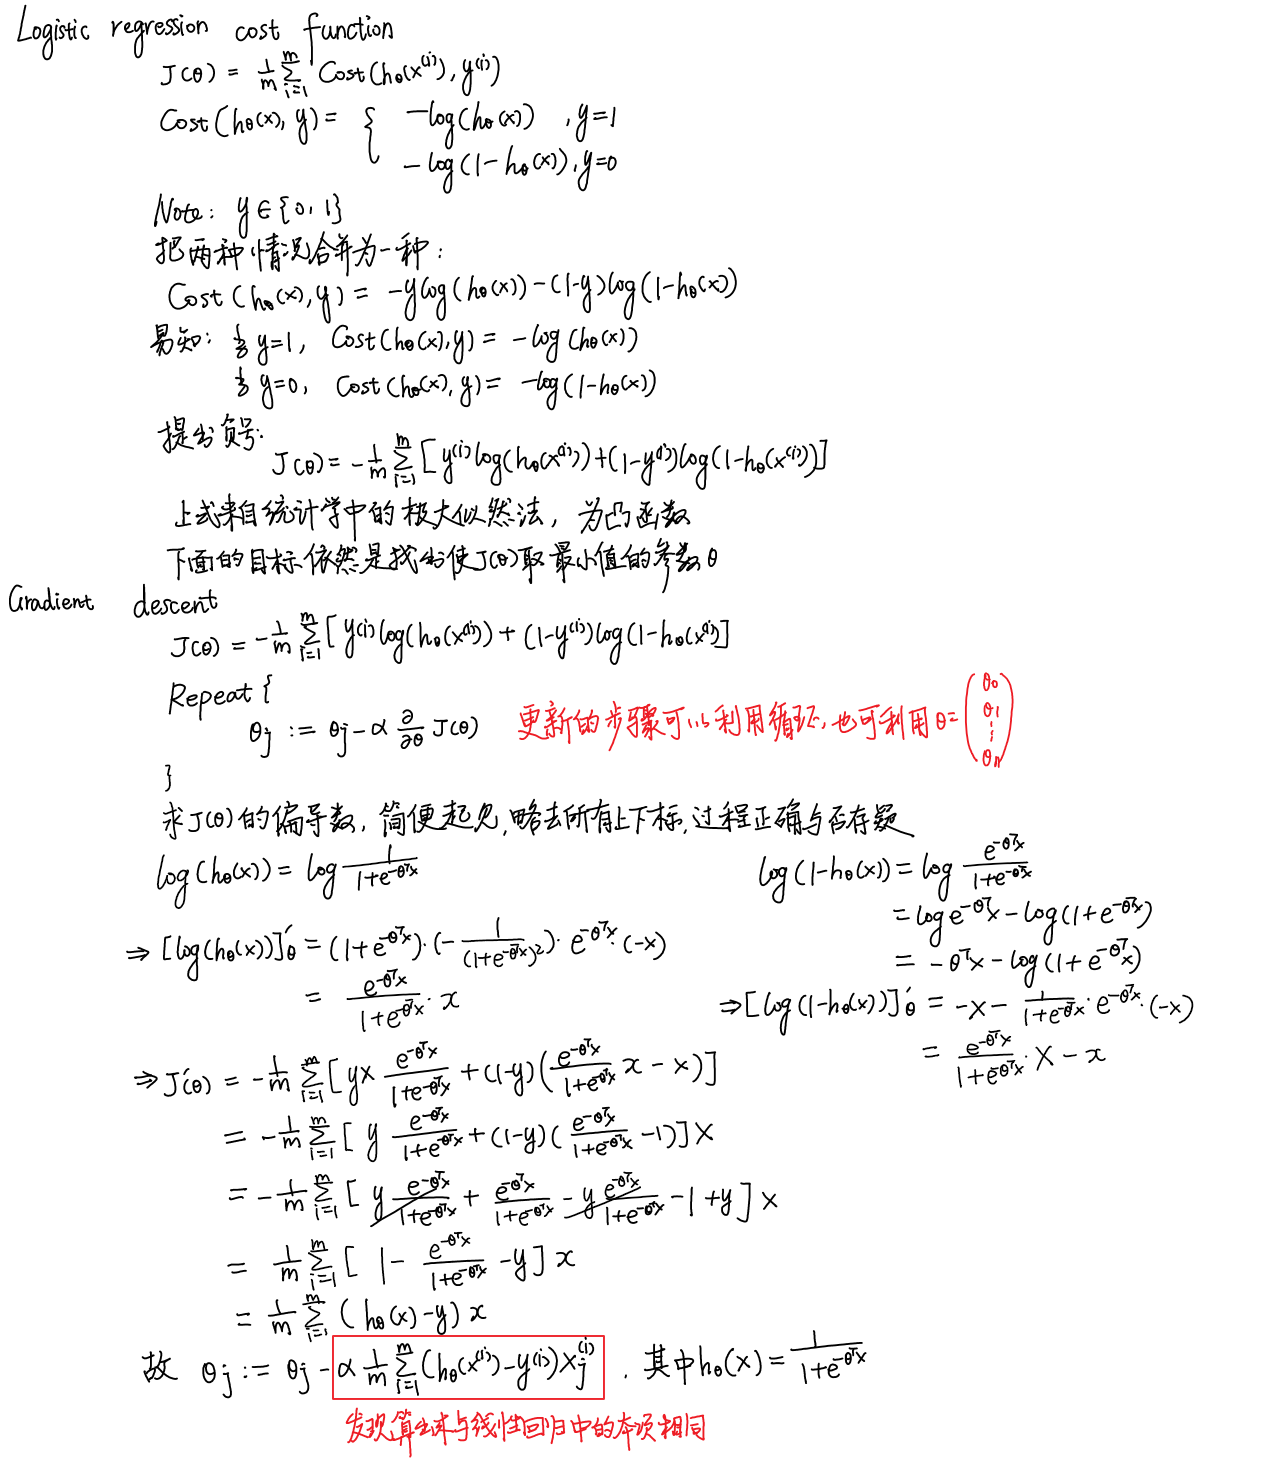 Logistic regression cost function
J(θ) = 1/m Σ_{i=1}^{m} Cost(hθ(x^(i)), y^(i))
Cost(hθ(x), y) = { -log(hθ(x)) , y=1
-log(1-hθ(x)), y=0
Note: y∈{0,1}
把两种情况合并为一种:
Cost(hθ(x), y) = -ylog(hθ(x))-(1-y)log(1-hθ(x))
易知: 当y=1, Cost(hθ(x), y) = -log(hθ(x))
当y=0, Cost(hθ(x), y) = -log(1-hθ(x))
提出负号:
J(θ) = -1/m Σ_{i=1}^{m} [y^(i)log(hθ(x^(i)))+(1-y^(i))log(1-hθ(x^(i)))]
上式来自统计学中的极大似然法, 为凸函数
下面的目标依然是找出使J(θ)取最小值的参数θ
Gradient descent
J(θ) = -1/m Σ_{i=1}^{m} [y^(i)log(hθ(x^(i))) + (1-y^(i))log(1-hθ(x^(i))]
Repeat {
θj := θj - α ∂/∂θ J(θ) 更新的步骤可以利用循环, 也可利用θ=(θ0 θ1 ⋮ θn)
}
求J(θ)的偏导数, 简便起见, 略去所有上下标, 过程正确与否存疑
log(hθ(x)) = log 1/(1+e^{-θ^T x})
⇒ [log(hθ(x))]'θ = (1+e^{-θ^T x})·(-1/(1+e^{-θ^T x})²)·e^{-θ^T x}·(-x)
= e^{-θ^T x}/(1+e^{-θ^T x}) · x
log(1-hθ(x)) = log e^{-θ^T x}/(1+e^{-θ^T x})
= log e^{-θ^T x} - log(1+e^{-θ^T x})
= -θ^T x - log(1+e^{-θ^T x})
⇒ [log(1-hθ(x))]'θ = -x - 1/(1+e^{-θ^T x})·e^{-θ^T x}·(-x)
= e^{-θ^T x}/(1+e^{-θ^T x}) · x - x
⇒ J'(θ) = -1/m Σ_{i=1}^{m} [yx e^{-θ^T x}/(1+e^{-θ^T x}) + (1-y)(e^{-θ^T x}/(1+e^{-θ^T x}) x - x)]
= -1/m Σ_{i=1}^{m} [y e^{-θ^T x}/(1+e^{-θ^T x}) + (1-y)(e^{-θ^T x}/(1+e^{-θ^T x}) - 1)]x
= -1/m Σ_{i=1}^{m} [y e^{-θ^T x}/(1+e^{-θ^T x}) + e^{-θ^T x}/(1+e^{-θ^T x}) - y e^{-θ^T x}/(1+e^{-θ^T x}) - 1 + y]x
= 1/m Σ_{i=1}^{m} [1 - e^{-θ^T x}/(1+e^{-θ^T x}) - y]x
= 1/m Σ_{i=1}^{m} (hθ(x)-y)x
故 θj := θj - α 1/m Σ_{i=1}^{m} (hθ(x^(i))-y^(i))xj^(i) , 其中hθ(x) = 1/(1+e^{-θ^T x})
发现算出来与线性回归中的本项相同